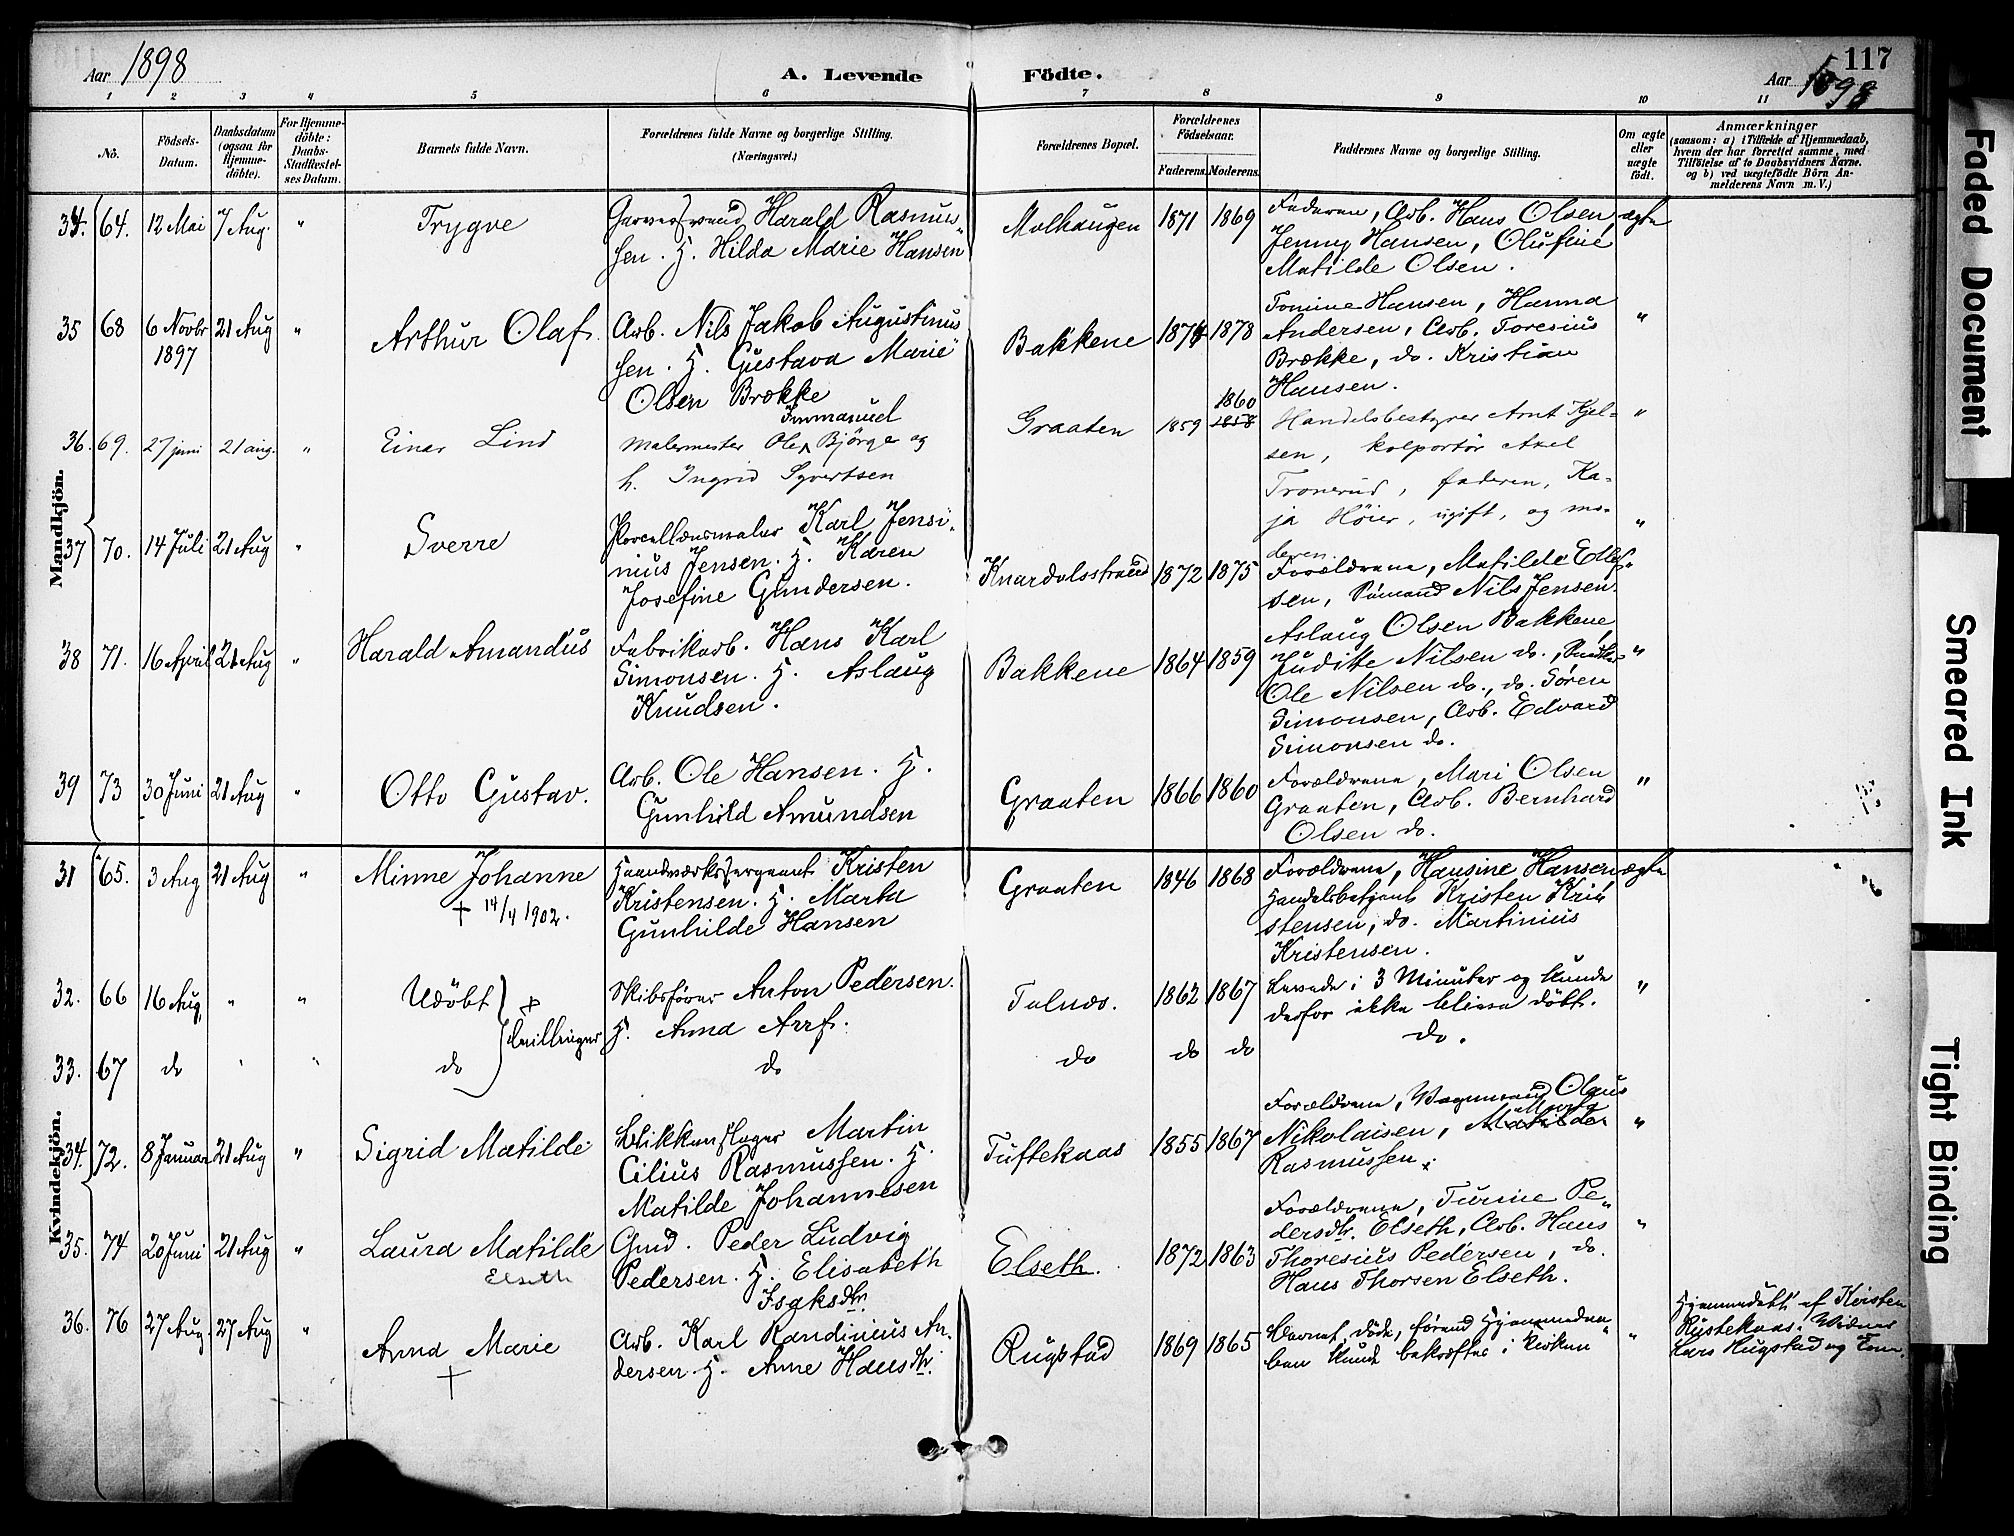 117
Aar 1898
A. Levende
Födte.
Aar 1898
1 2 3 4 5 6 7 8 9 10 11
No.
Födsels-
Datum.
Daabsdatum
(ogsaa for
Hjemme-
döbte).
For Hjemme-
döbte:
Daabs-
Stadfæstel-
ses Datum.
Barnets fulde Navn.
Forældrenes fulde Navne og borgerlige Stilling.
(Næringsvei.)
Forældrenes Bopæl.
Forældrenes
Födselsaar.
Faderens. Moderens.
Faddernes Navne og borgerlige Stilling.
Om ægte
eller
uægte
födt.
Anmærkninger
(saasom: a) i Tilfælde af Hjemmedaab,
hvem der har forrettet samme, med
Tilföielse af to Daabsvidners Navne.
og b) ved uægtefödte Börn An-
melderens Navn m. V.)
Mandkjön.
34. 64. 12 Mai 7 Aug. " Trygve
Garversvend Harald Rasmus-
sen. H. Hilda Marie Hansen
Molhaugen 1871 1869
Faderen, Arb. Hans Olsen,
Jenny Hansen, Olufine
Matilde Olsen.
ægte
35 68 6 Novbr
1897
21 Aug " Arthur Olaf.
Arb. Nils Jakob Augustinus-
sen. H. Gustava Marie
Olsen Brække
Bakkene 1874 1878
Tomine Hansen, Hanna
Andersen, Arb. Toresius
Brække, do. Kristian
Hansen.
"
36. 69. 27 juni 21 aug. " Einar Lind
Immanuel
Malermester Ole Bjørge og
h. Ingrid Syvertsen
Graaten 1859 1860
1858
Handelsbestyrer Arnt Kjel-
sen, kolportör Axel
Tronerud, faderen, Ka-
ja Höier, ugift, og mo-
deren.
"
37 70. 14 Juli 21 Aug " Sverre
Porcellænsmaler Karl Jensi-
nius Jensen. H. Karen
Josefine Gundersen.
Knardalsstrand 1872 1875
Forældrene, Matilde Ellef-
sen, Sömand Nils Jensen.
"
38 71. 16 April 21 Aug " Harald Amandus
Fabrikarb. Hans Karl
Simonsen. H. Aslaug
Knudsen.
Bakkene 1864 1859
Aslaug Olsen Bakkene,
Juditte Nilsen do.,
Ole Nilsen do., do. Sören
Simonsen, Arb. Edvard
Simonsen do.
"
39 73 30 Juni 21 Aug " Otto Gustav.
Arb. Ole Hansen. H.
Gunhild Amundsen
Graaten 1866 1860
Forældrene, Mari Olsen
Graaten, Arb. Bernhard
Olsen do.
"
Kvindekjön.
31 65. 3 Aug 21 Aug " Minne Johanne
+ 14/4 1902.
Haandværkssergeant Kristen
Kristensen. H. Marta
Gunhilde Hansen
Graaten 1846 1868
Forældrene, Hansine Hansen
Handelsbetjent Kristen Kri-
stensen, do. Martinius
Kristensen.
ægte
32. 66 16 Aug. " " Udöbt + Tvillinger
Skibsförer Anton Pedersen.
H. Anna Arrf.
Tolnæs. 1862 1867
Levede i 3 Minuter og kunde
derfor ikke blive döbt.
"
33. 67 do " " do do do do do do.
34. 72. 8 Januar 21 Aug " Sigrid Matilde
Blikkenslager Martin
Cilius Rasmussen. H.
Matilde Johannesen
Tuftekaas 1855 1867
Forældrene, Vognmand Olaus
Nikolaisen, Matilde
Rasmussen.
"
35. 74 20 Juni 21 Aug " Laura Matilde
Elseth
Gmd. Peder Ludvig
Pedersen. H. Elisabeth
Isaksdtr.
Elseth. 1872 1863
Forældrene, Turine Pe-
dersdtr. Elseth, Arb. Hans
Thoresius Pedersen, do.
Hans Thorsen Elseth.
"
36. 76 27 Aug. 27 Aug " Anna Marie
+
Arb. Karl Randinius An-
dersen H. Anne Hansdtr.
Rugstad 1869 1865
Barnet döde, förend Hjemmedaa-
ben kunde bekræftes i kirken
"
Hjemmedöbt af Kirsten
Rustekaas. Vidner
Lars Rugstad og Tom.
Faded Document
Smeared Ink
Tight Binding